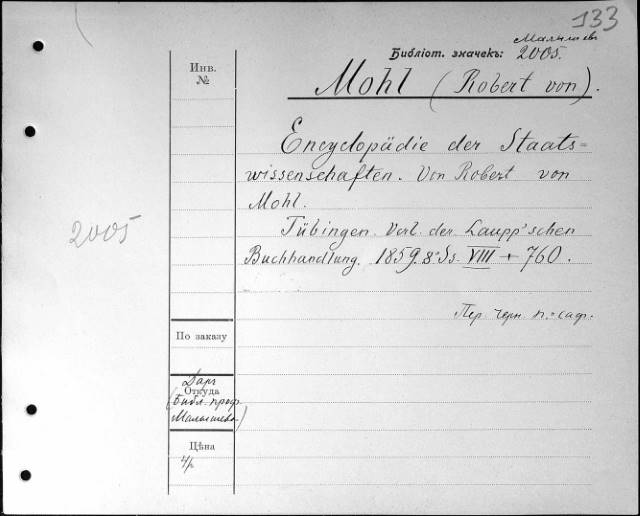 133
Малышев
Библіот. значекъ: 2005.
Инв.
№
Mohl (Robert von).
Encyclopädie der Staats=
wissenschaften. Von Robert von
Mohl.
2005
Tübingen. Verl. der Laupp'schen
Buchhandlung. 1859. 8° Ss. VIII + 760.
Пер. черн. п.=саф.
По заказу
Даръ
Откуда
(Библ. проф.
Малышева)
Цѣна
4р